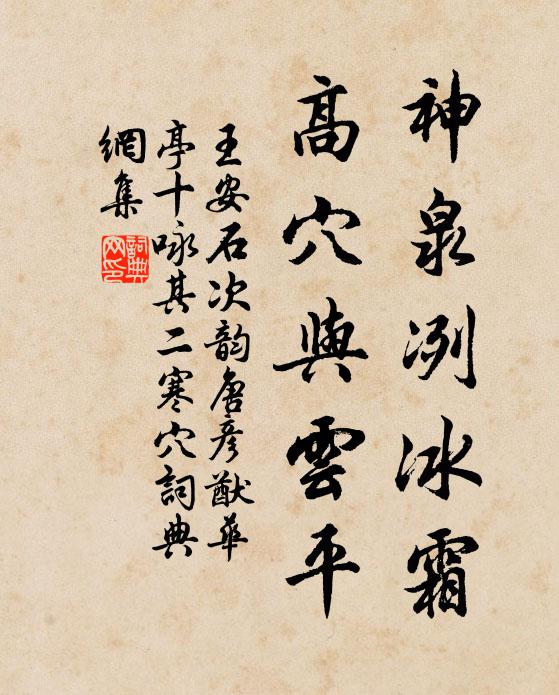 神泉冽冰霜
高穴與雲平
王安石次韵唐彦猷華
亭十咏其二寒穴詞典
網集
詞典
网印